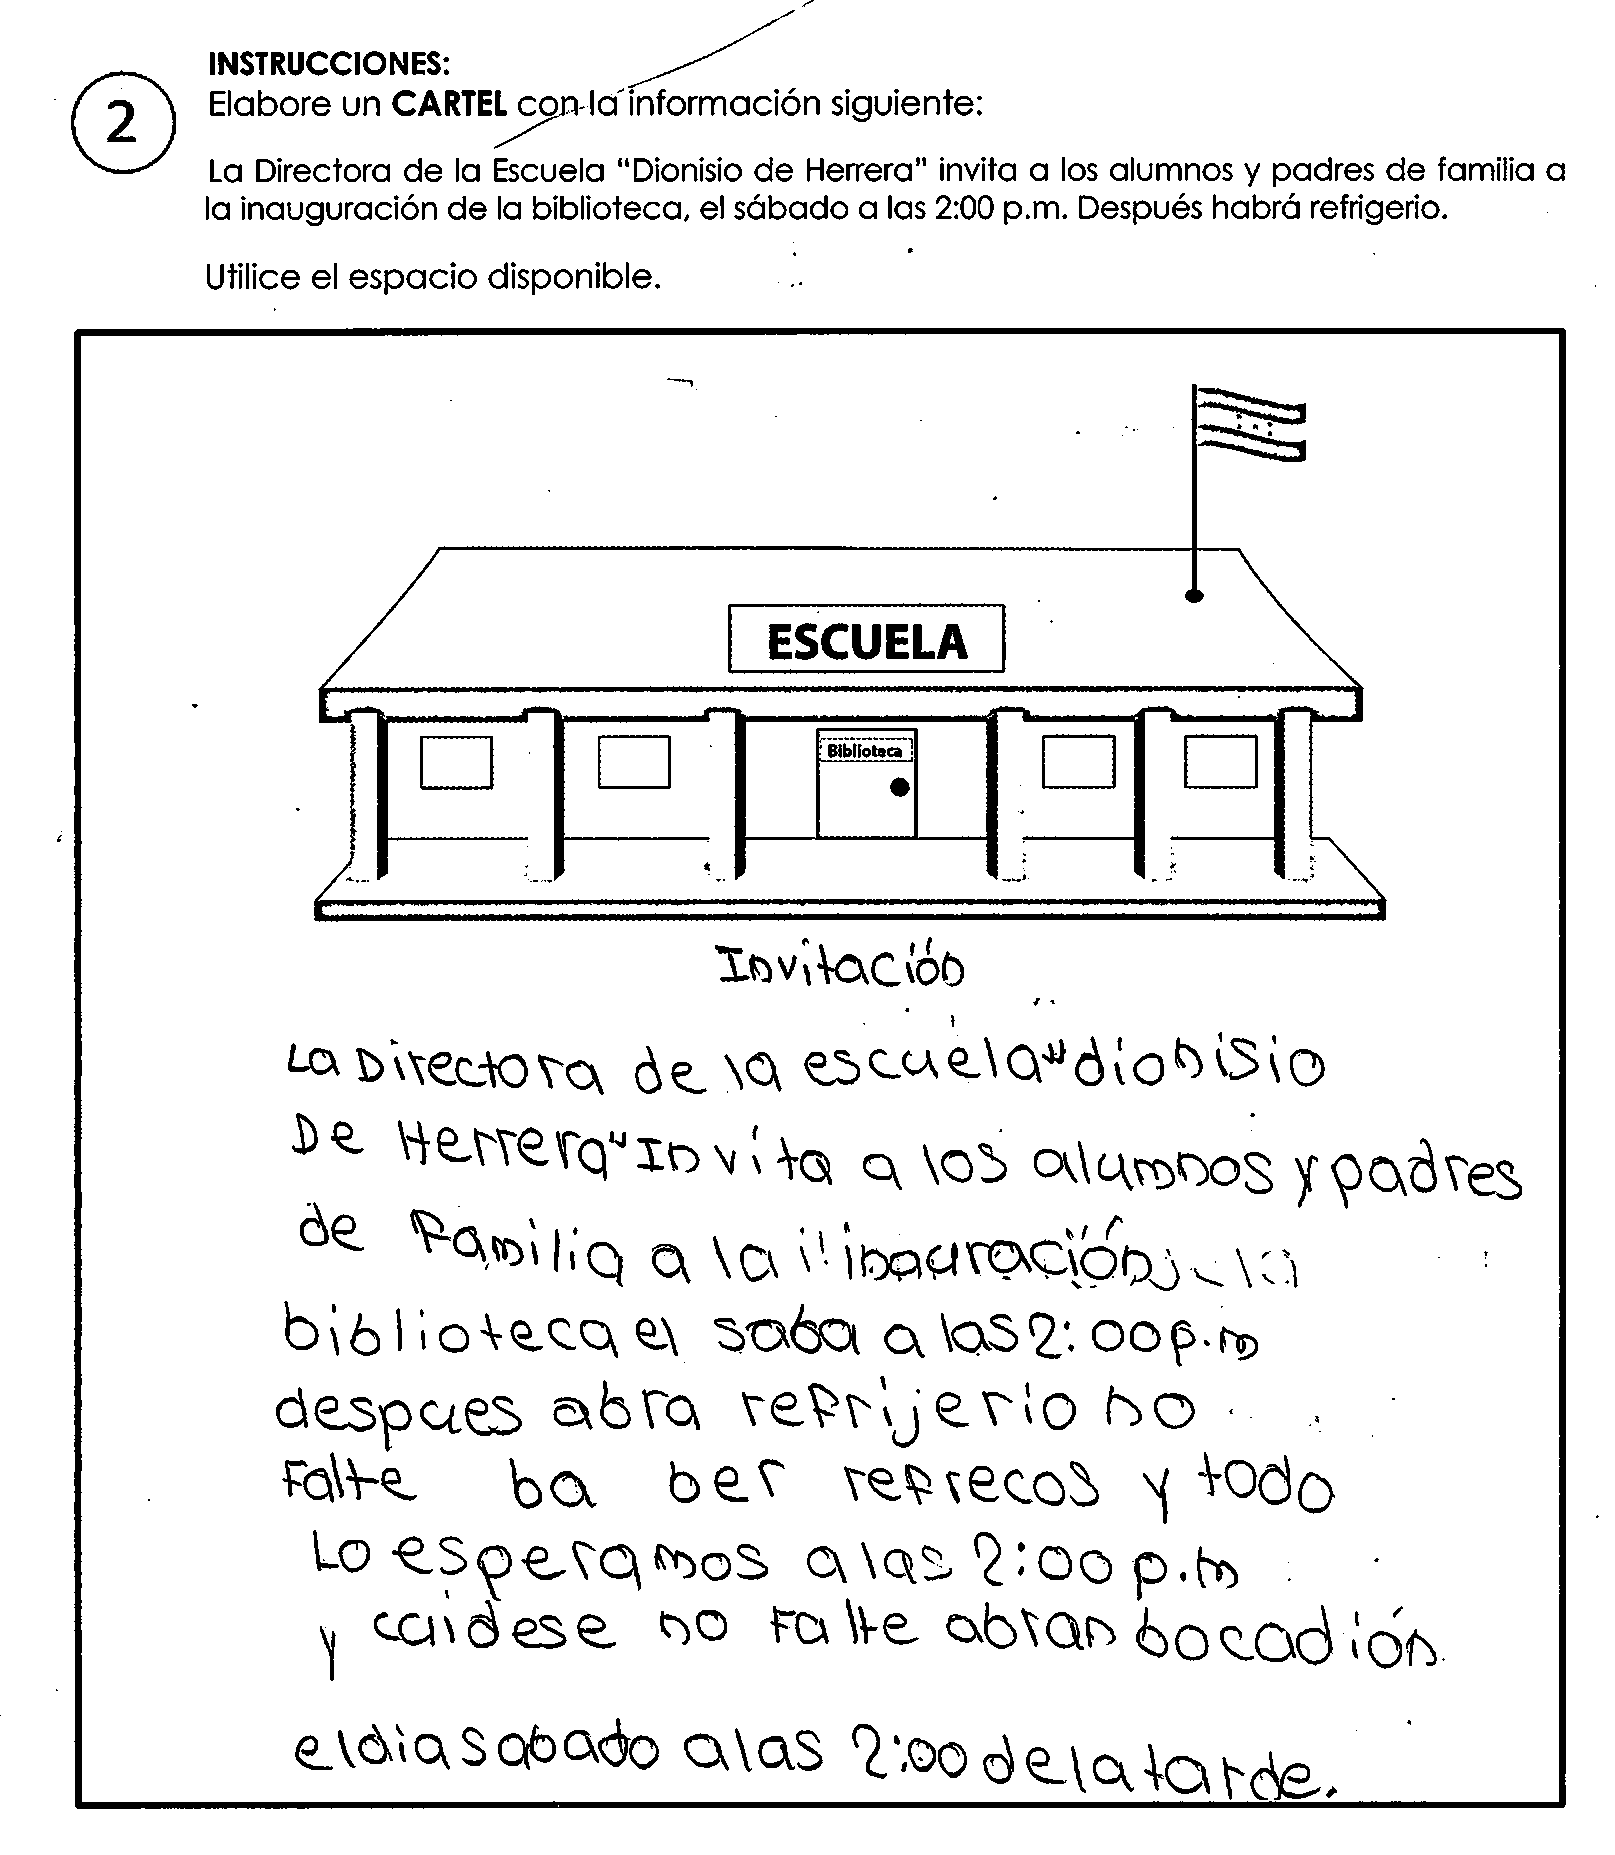 INSTRUCCIONES:
2
Elabore un CARTEL con la información siguiente:
La Directora de la Escuela "Dionisio de Herrera" invita a los alumnos y padres de familia a
la inauguración de la biblioteca, el sábado a las 2:00 p.m. Después habrá refrigerio.
Utilice el espacio disponible.
ESCUELA
Biblioteca
Invitación
La Directora de la escuela "dionisio
De Herrera" Invita a los alumnos y padres
de Familia a la inauración la
biblioteca el saba a las 2:00 p.m
despues abra refrijerio no
Falte ba ber refrecos y todo
Lo esperamos a las 2:00 p.m
y cuidese no Falte abran bocadión
el dia sabado a las 2:00 de la tarde.